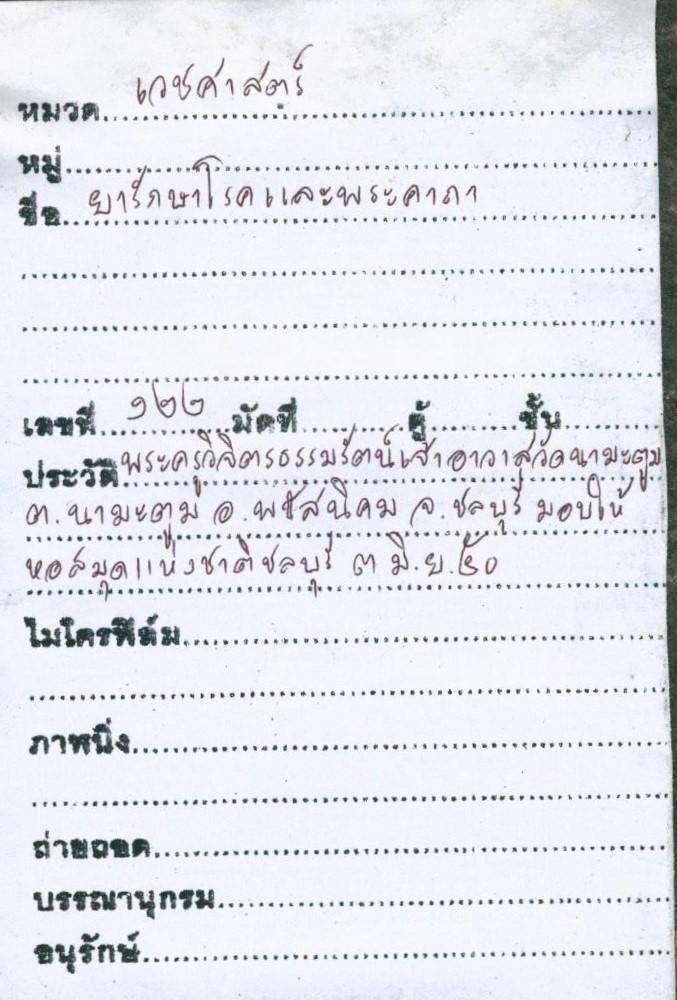 หมวด เวชศาสตร์
หมู่
ชื่อ ยารักษาโรคและพระคาถา
เลขที่ ๑๒๒ มัดที่ ตู้ ชั้น
ประวัติ พระครูวิจิตรธรรมรัตน์เจ้าอาวาสวัดนามะตูม
ต.นามะตูม อ.พนัสนิคม จ.ชลบุรี มอบให้
หอสมุดแห่งชาติชลบุรี ๓ มิ.ย.๕๐
ไมโครฟิล์ม
ภาพนิ่ง
ถ่ายถอด
บรรณานุกรม
อนุรักษ์